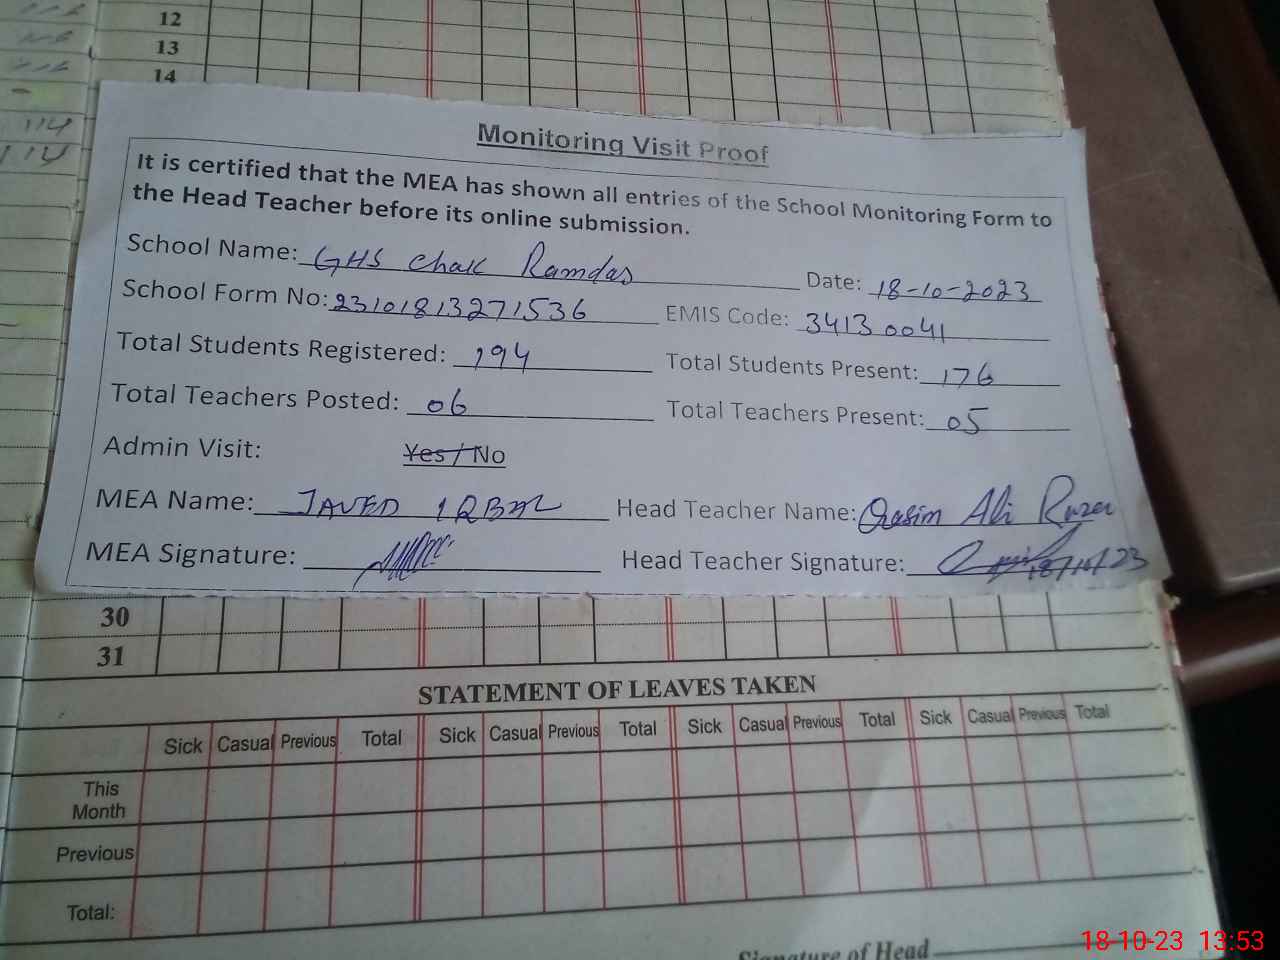 12
13
14
114
114
Monitoring Visit Proof
It is certified that the MEA has shown all entries of the School Monitoring Form to
the Head Teacher before its online submission.
School Name: GHS Chak Ramdas Date: 18-10-2023
School Form No: 23101813271536 EMIS Code: 34130041
Total Students Registered: 194 Total Students Present: 176
Total Teachers Posted: 06 Total Teachers Present: 05
Admin Visit: Yes / No
MEA Name: JAVED IQBAL Head Teacher Name: Qasim Ali Raza
MEA Signature: Head Teacher Signature: 18/10/23
30
31
STATEMENT OF LEAVES TAKEN
Sick Casual Previous Total Sick Casual Previous Total Sick Casual Previous Total Sick Casual Previous Total
This
Month
Previous
Total:
Signature of Head
18-10-23 13:53